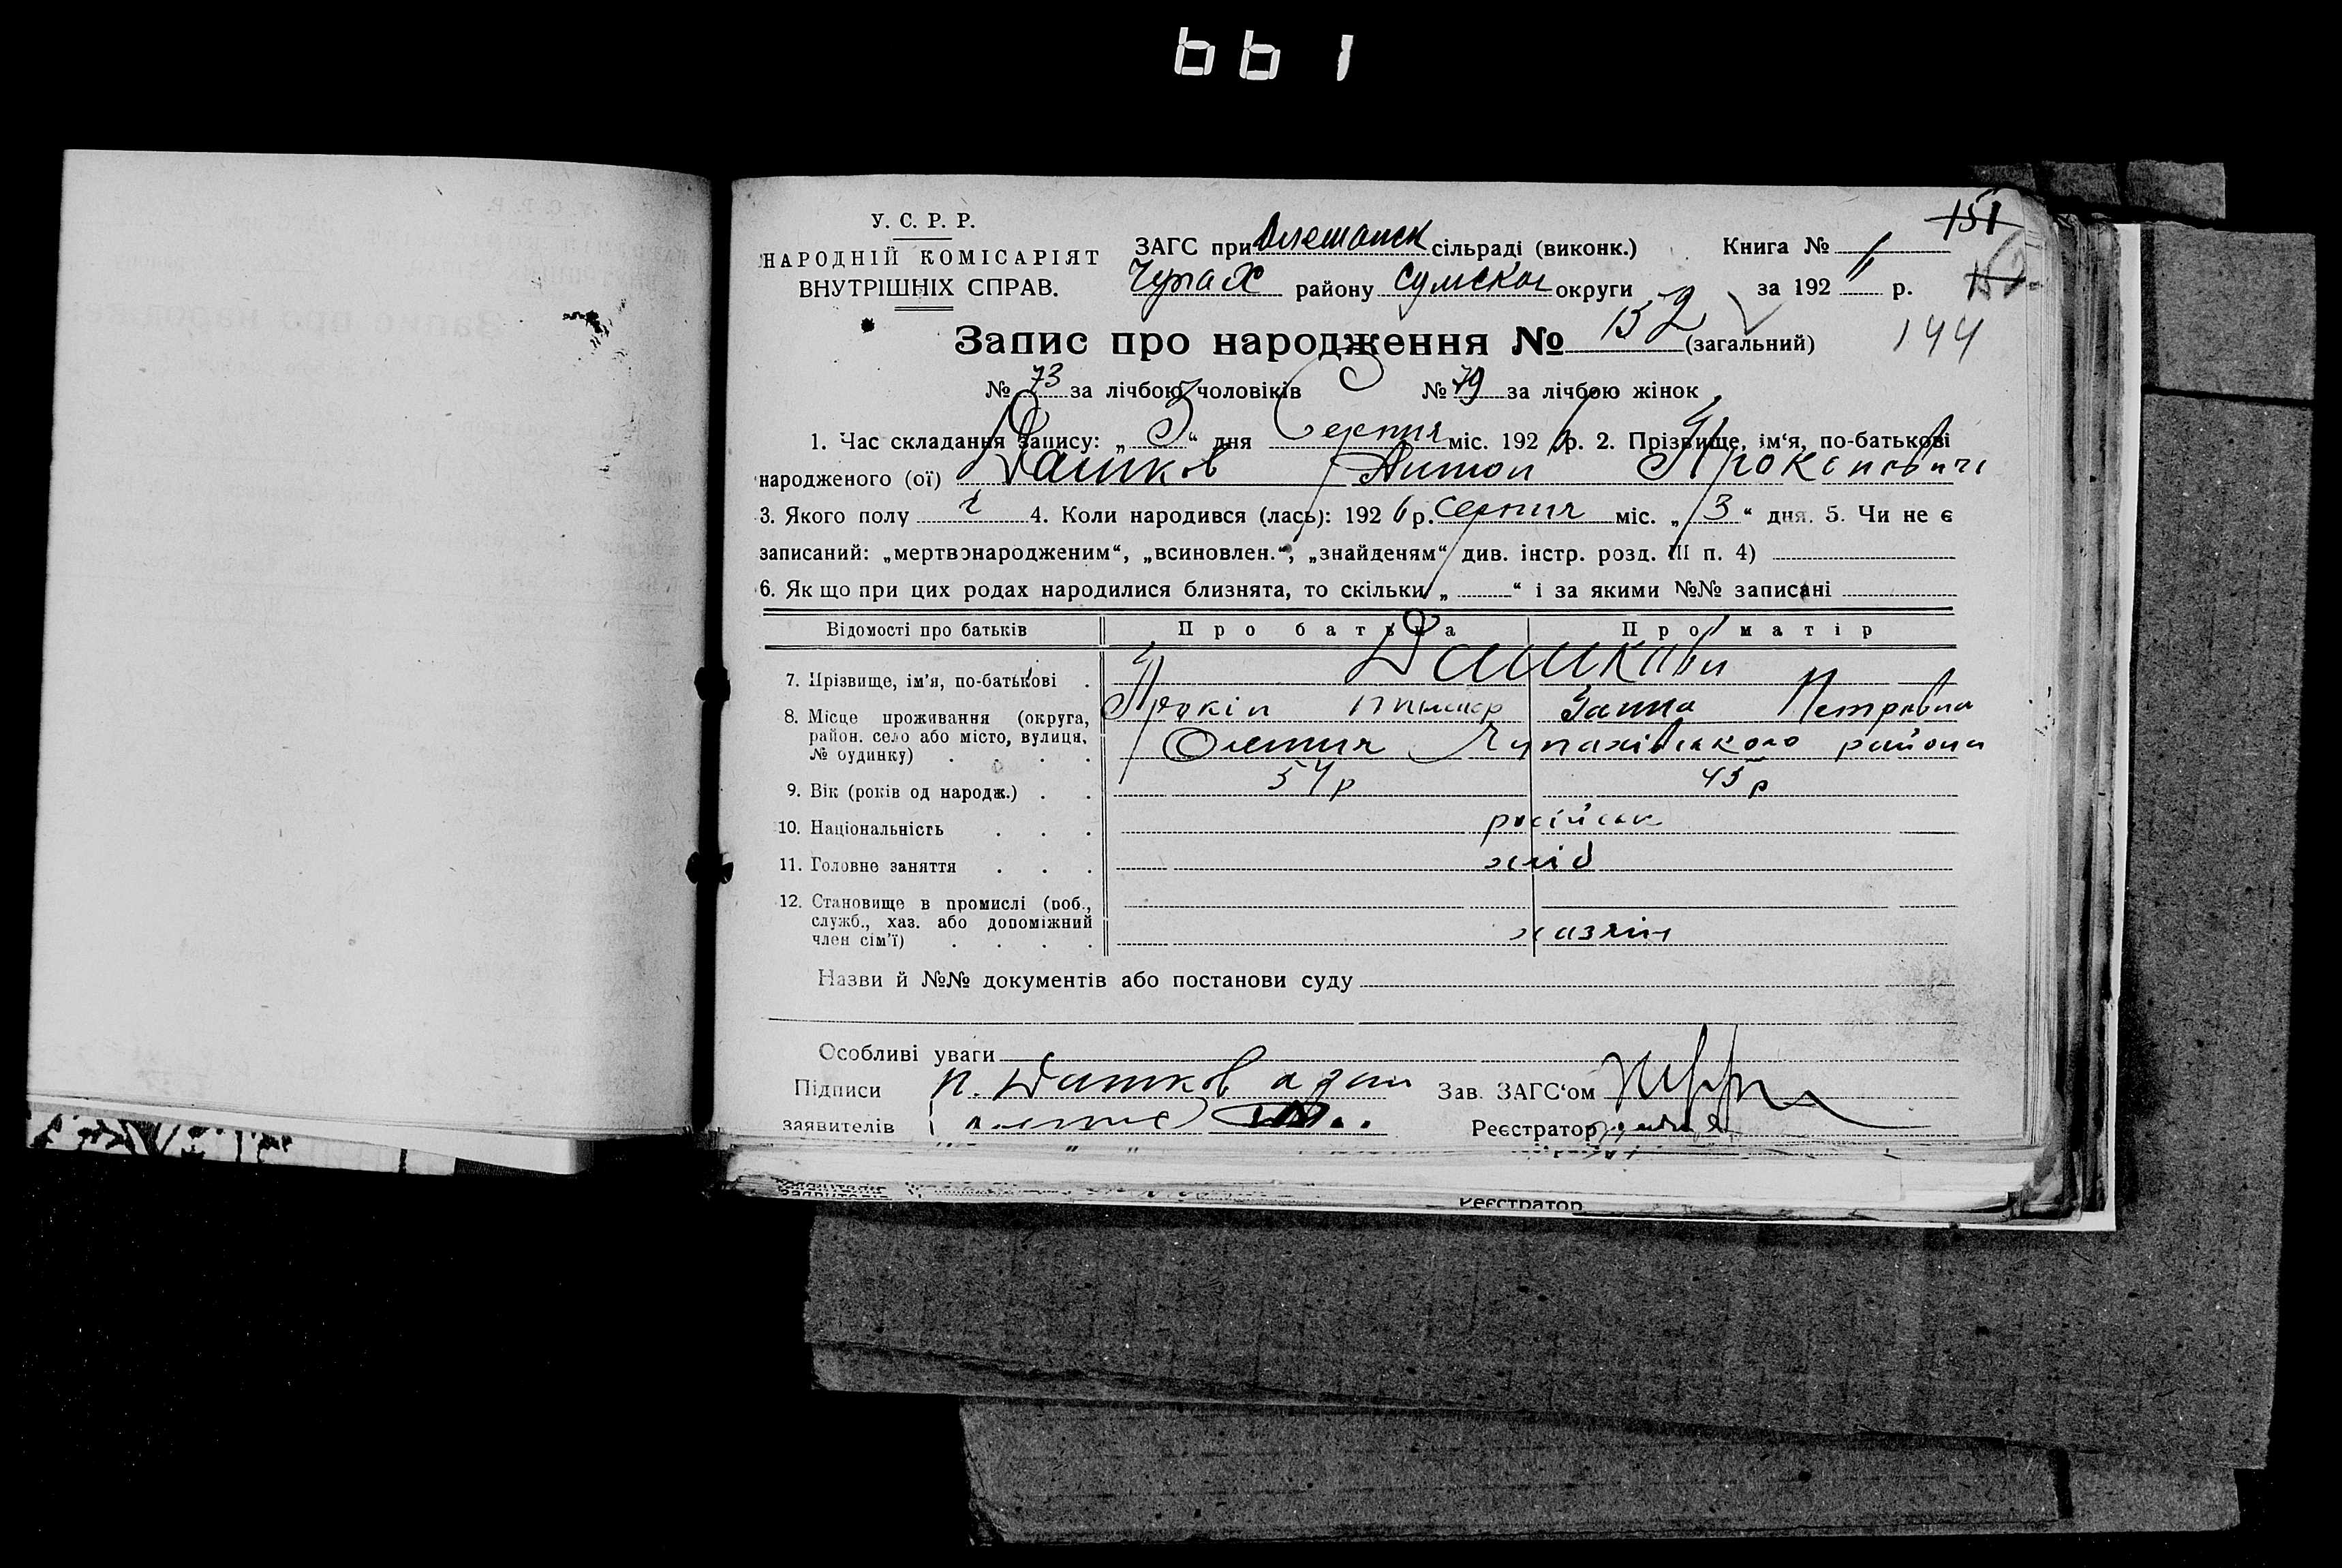 661
У. С. Р. Р.
НАРОДНІЙ КОМІСАРІЯТ
ВНУТРІШНІХ СПРАВ.
ЗАГС при Олешанск сільраді (виконк.) Книга № 1
Чупах району Сумскої округи за 192 р.
151
144
Запис про народження № 152 (загальний)
№ 73 за лічбою чоловіків № 79 за лічбою жінок
1. Час складання запису: „ 3 “ дня Серпня міс. 192 6 р. 2. Прізвище, ім‘я, по-батькові
народженого (ої) Дашков Антон Прокопович
3. Якого полу ч 4. Коли народився (лась): 192 6 р. Серпня міс. „ 3 “ дня. 5. Чи не є
записаний: „мертвонародженим“, „всиновлен.“, „знайденям“ див. інстр. розд. III п. 4)
6. Як що при цих родах народилися близнята, то скільки „ “ і за якими №№ записані
Відомості про батьків Про батька Про матір
7. Прізвище, ім'я, по-батькові . Дашкови
Прокіп Ганна Петровна
8. Місце проживання (округа,
район. село або місто, вулиця,
№ будинку) . . . . Олешня Чупахівського района
9. Вік (років од народж.) . . 54 р 45 р
10. Національність . . . російськ
11. Головне заняття . . . хліб
12. Становище в промислі (роб.,
служб., хаз. або допоміжний
член сім'ї) . . . . хазяін
Назви й №№ документів або постанови суду
Особливі уваги
Підписи П. Дашков Зав. ЗАГС‘ом
заявителів Реєстратор
Реєстратор